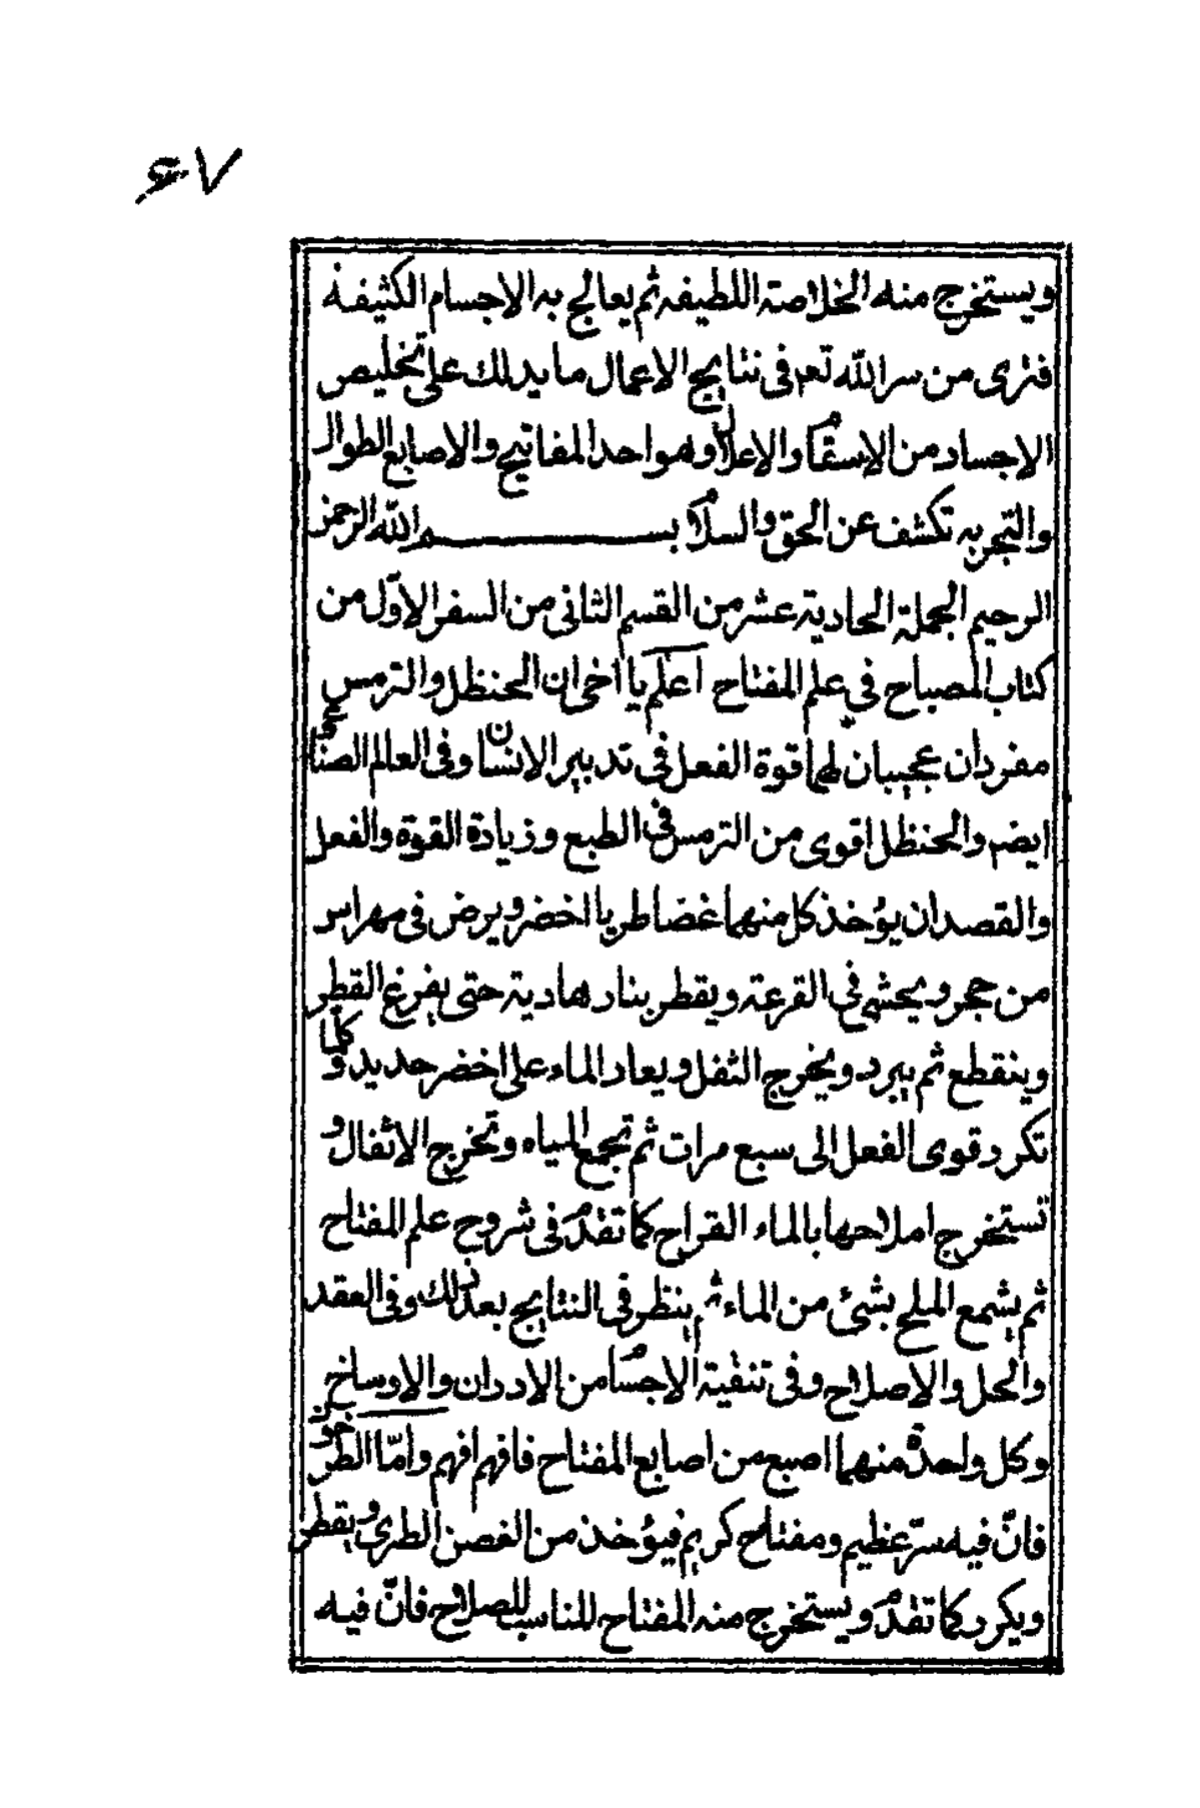 ٤٧
ويستخرج منه الخلاصة اللطيفه ثم يعالج به الاجسام الكثيفه
فترى من سر الله تعم فى نتايج الاعمال ما يدلك على تخليص
الاجساد من الاسقام والاعلال وهو احد المفاتيح والاصابع الطوال
والتجربه تكشف عن الحق والسلام بسم الله الرحمن
الرحيم الجملة الحادية عشر من القسم الثانى من السفر الاول من
كتاب المصباح في علم المفتاح اعلم يا اخى ان الحنظل والترمس
مفردان عجيبان لهما قوة الفعل في تدبير الانسان وفى العالم الصناعى
ايضم والحنظل اقوى من الترمس فى الطبع وزيادة القوة والفعل
والقصد ان يؤخذ كل منهما غضا طريا اخضر ويرض فى مهراس
من حجر ويحشى في القرعة ويقطر بنار هادية حتى يفرغ القطر
وينقطع ثم يبرد ويخرج الثفل ويعاد الماء على اخضر جديد وكلما
تكرر قوى الفعل الى سبع مرات ثم تجمع المياه وتخرج الاثفال و
تستخرج املاحها بالماء القراح كما تقدم فى شروح علم المفتاح
ثم يشمع الملح بشئ من الماء ثم ينظر فى النتايج بعد ذلك وفى العقد
والحل والاصلاح وفى تنقية الاجسام من الادران والاوساخ
وكل واحدة منهما اصبع من اصابع المفتاح فافهم افهم وامّا الطرخون
فانّ فيه سرّ عظيم ومفتاح كريم فيؤخذ من الغصن الطرى ويقطر
ويكرر كما تقدم ويستخرج منه المفتاح للناسب للصلاح فانّ فيه